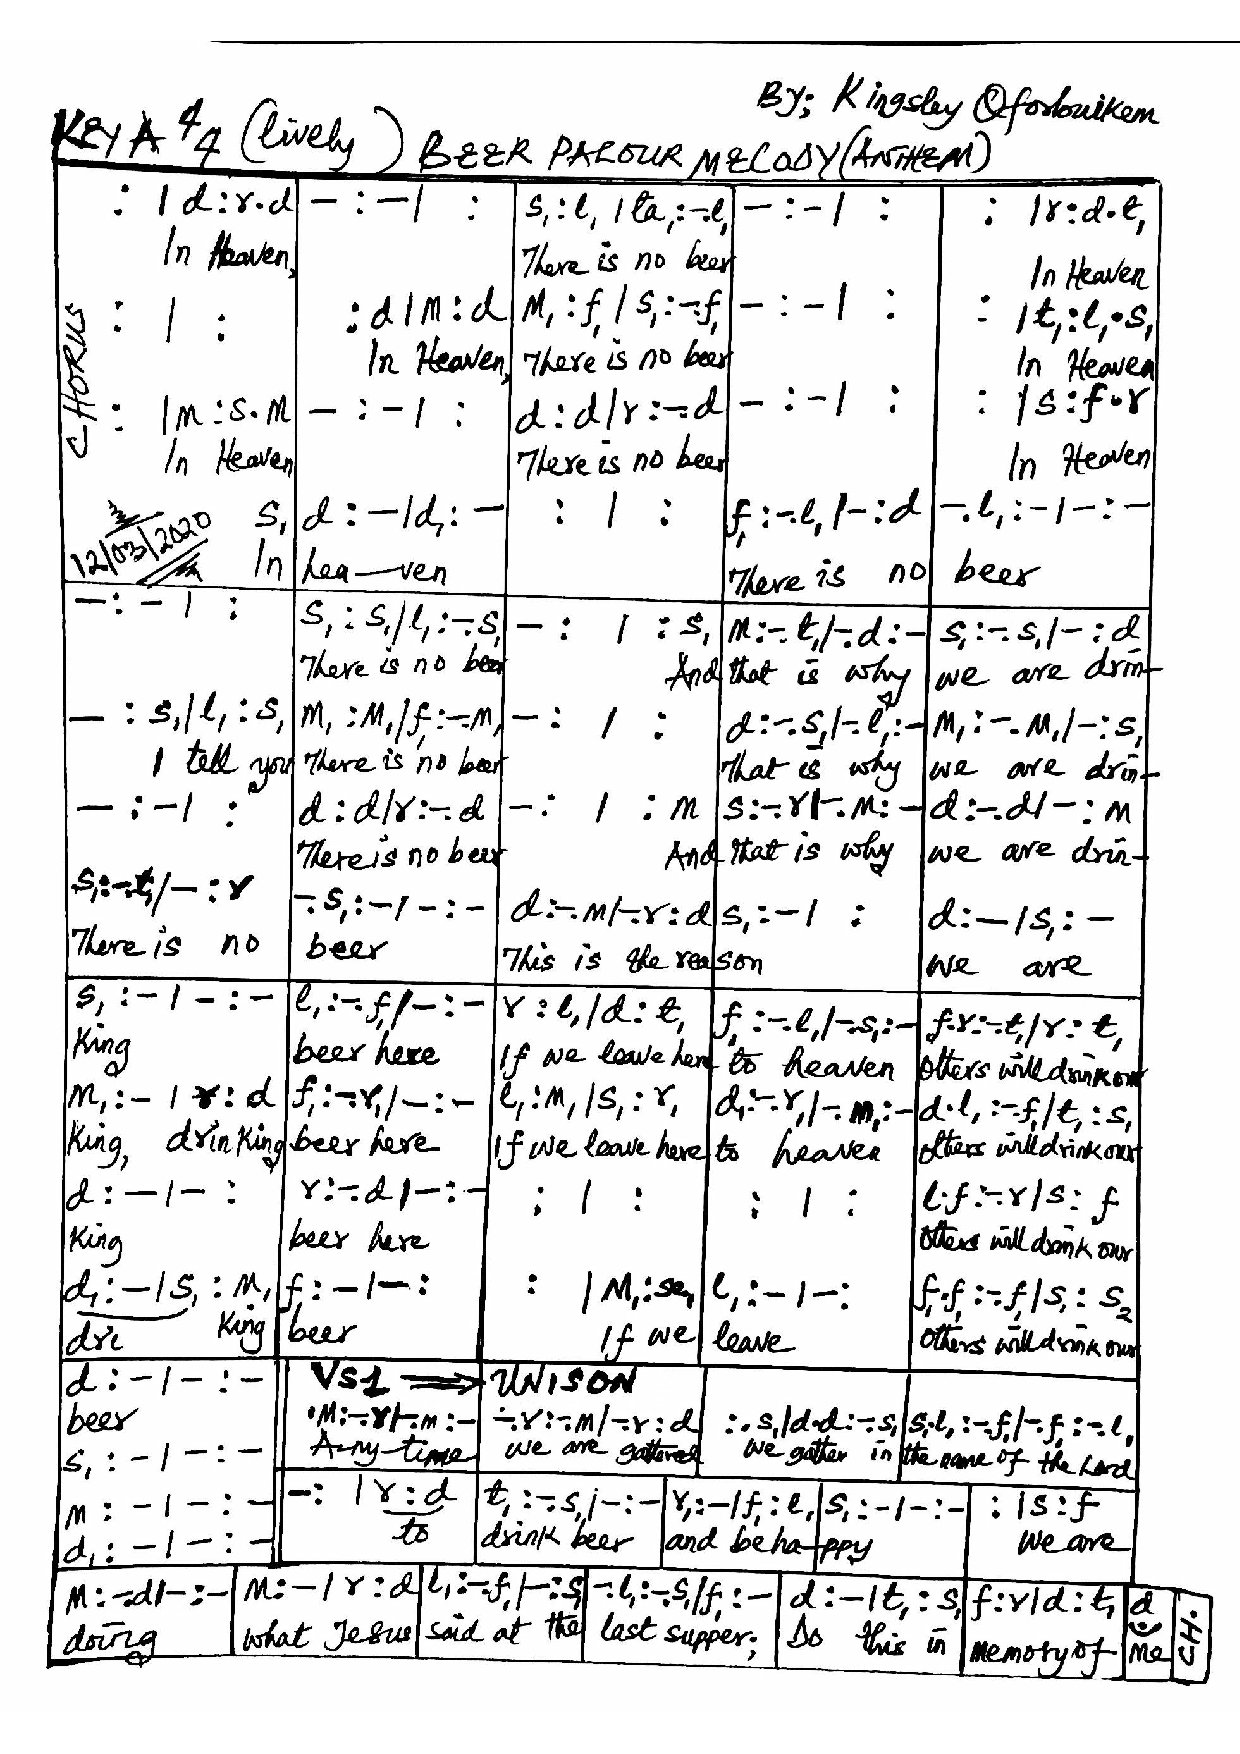 By; Kingsley Oforbuikem
KEY A 4/4 (lively) BEER PALOUR MELODY (ANTHEM)
CHORUS
: | d : r . d | - : - | : | s₁ : l₁ | ta₁ : -. l₁ | - : - | : | : | r : d . t₁
In Heaven, There is no beer In Heaven
: | : | : d | m : d | m₁ : f₁ | s₁ : -. f₁ | - : - | : | : | t₁ : l₁ . s₁
In Heaven, There is no beer In Heaven
: | m : s . m | - : - | : | d : d | r : -. d | - : - | : | : | s : f . r
In Heaven There is no beer In Heaven
s₁ | d : - | d₁ : - | : | : | f₁ : -. l₁ | - : d | -. l₁ : - | - : -
12/03/2020 In hea—ven There is no beer
- : - | : | s₁ : s₁ | l₁ : -. s₁ | - : | : s₁ | m : -. t₁ | -. d : - | s₁ : -. s₁ | - : d
There is no beer And that is why we are drin-
- : s₁ | l₁ : s₁ | m₁ : m₁ | f₁ : -. m₁ | - : | : | d : -. s₁ | -. l₁ : - | m₁ : -. m₁ | - : s₁
I tell you There is no beer That is why we are drin-
- : - | : | d : d | r : -. d | - : | : m | s : -. r | -. m : - | d : -. d | - : m
There is no beer And that is why we are drin-
s₁ : -. t₁ | - : r | -. s₁ : - | - : - | d : -. m | -. r : d | s₁ : - | : | d : - | s₁ : -
There is no beer This is the reason we are
s₁ : - | - : - | l₁ : -. f₁ | - : - | r : l₁ | d : t₁ | f₁ : -. l₁ | -. s₁ : - | f . r : -. t₁ | r : t₁
King beer here If we leave here to heaven others will drink our
m₁ : - | r : d | f₁ : -. r₁ | - : - | l₁ : m₁ | s₁ : r₁ | d₁ : -. r₁ | -. m₁ : - | d . l₁ : -. f₁ | t₁ : s₁
King, drinking beer here If we leave here to heaven others will drink our
d : - | - : | r : -. d | - : - | : | : | : | : | l . f : -. r | s : f
King beer here others will drink our
d₁ : - | s₁ : m₁ | f₁ : - | - : | : | m₁ : se₁ | l₁ : - | - : | f₁ . f₁ : -. f₁ | s₁ : s₂
dri King beer If we leave others will drink our
d : - | - : - | VS1 ⟹ UNISON
beer
. m : -. r | -. m : - | -. r : -. m | -. r : d | : . s₁ | d . d : -. s₁ | s₁ . l₁ : -. f₁ | -. f₁ : -. l₁
A-ny-time we are gathered we gather in the name of the Lord
s₁ : - | - : -
m : - | - : - | - : | r : d | t₁ : -. s₁ | - : - | r₁ : - | f₁ : l₁ | s₁ : - | - : - | : | s : f
to drink beer and be ha-ppy we are
d₁ : - | - : -
m : -. d | - : - | m : - | r : d | l₁ : -. f₁ | -. : s₁ | -. l₁ : -. s₁ | f₁ : - | d : - | t₁ : s₁ | f : r | d : t₁ | d
doing what Jesus said at the last supper; Do this in memory of me CH.